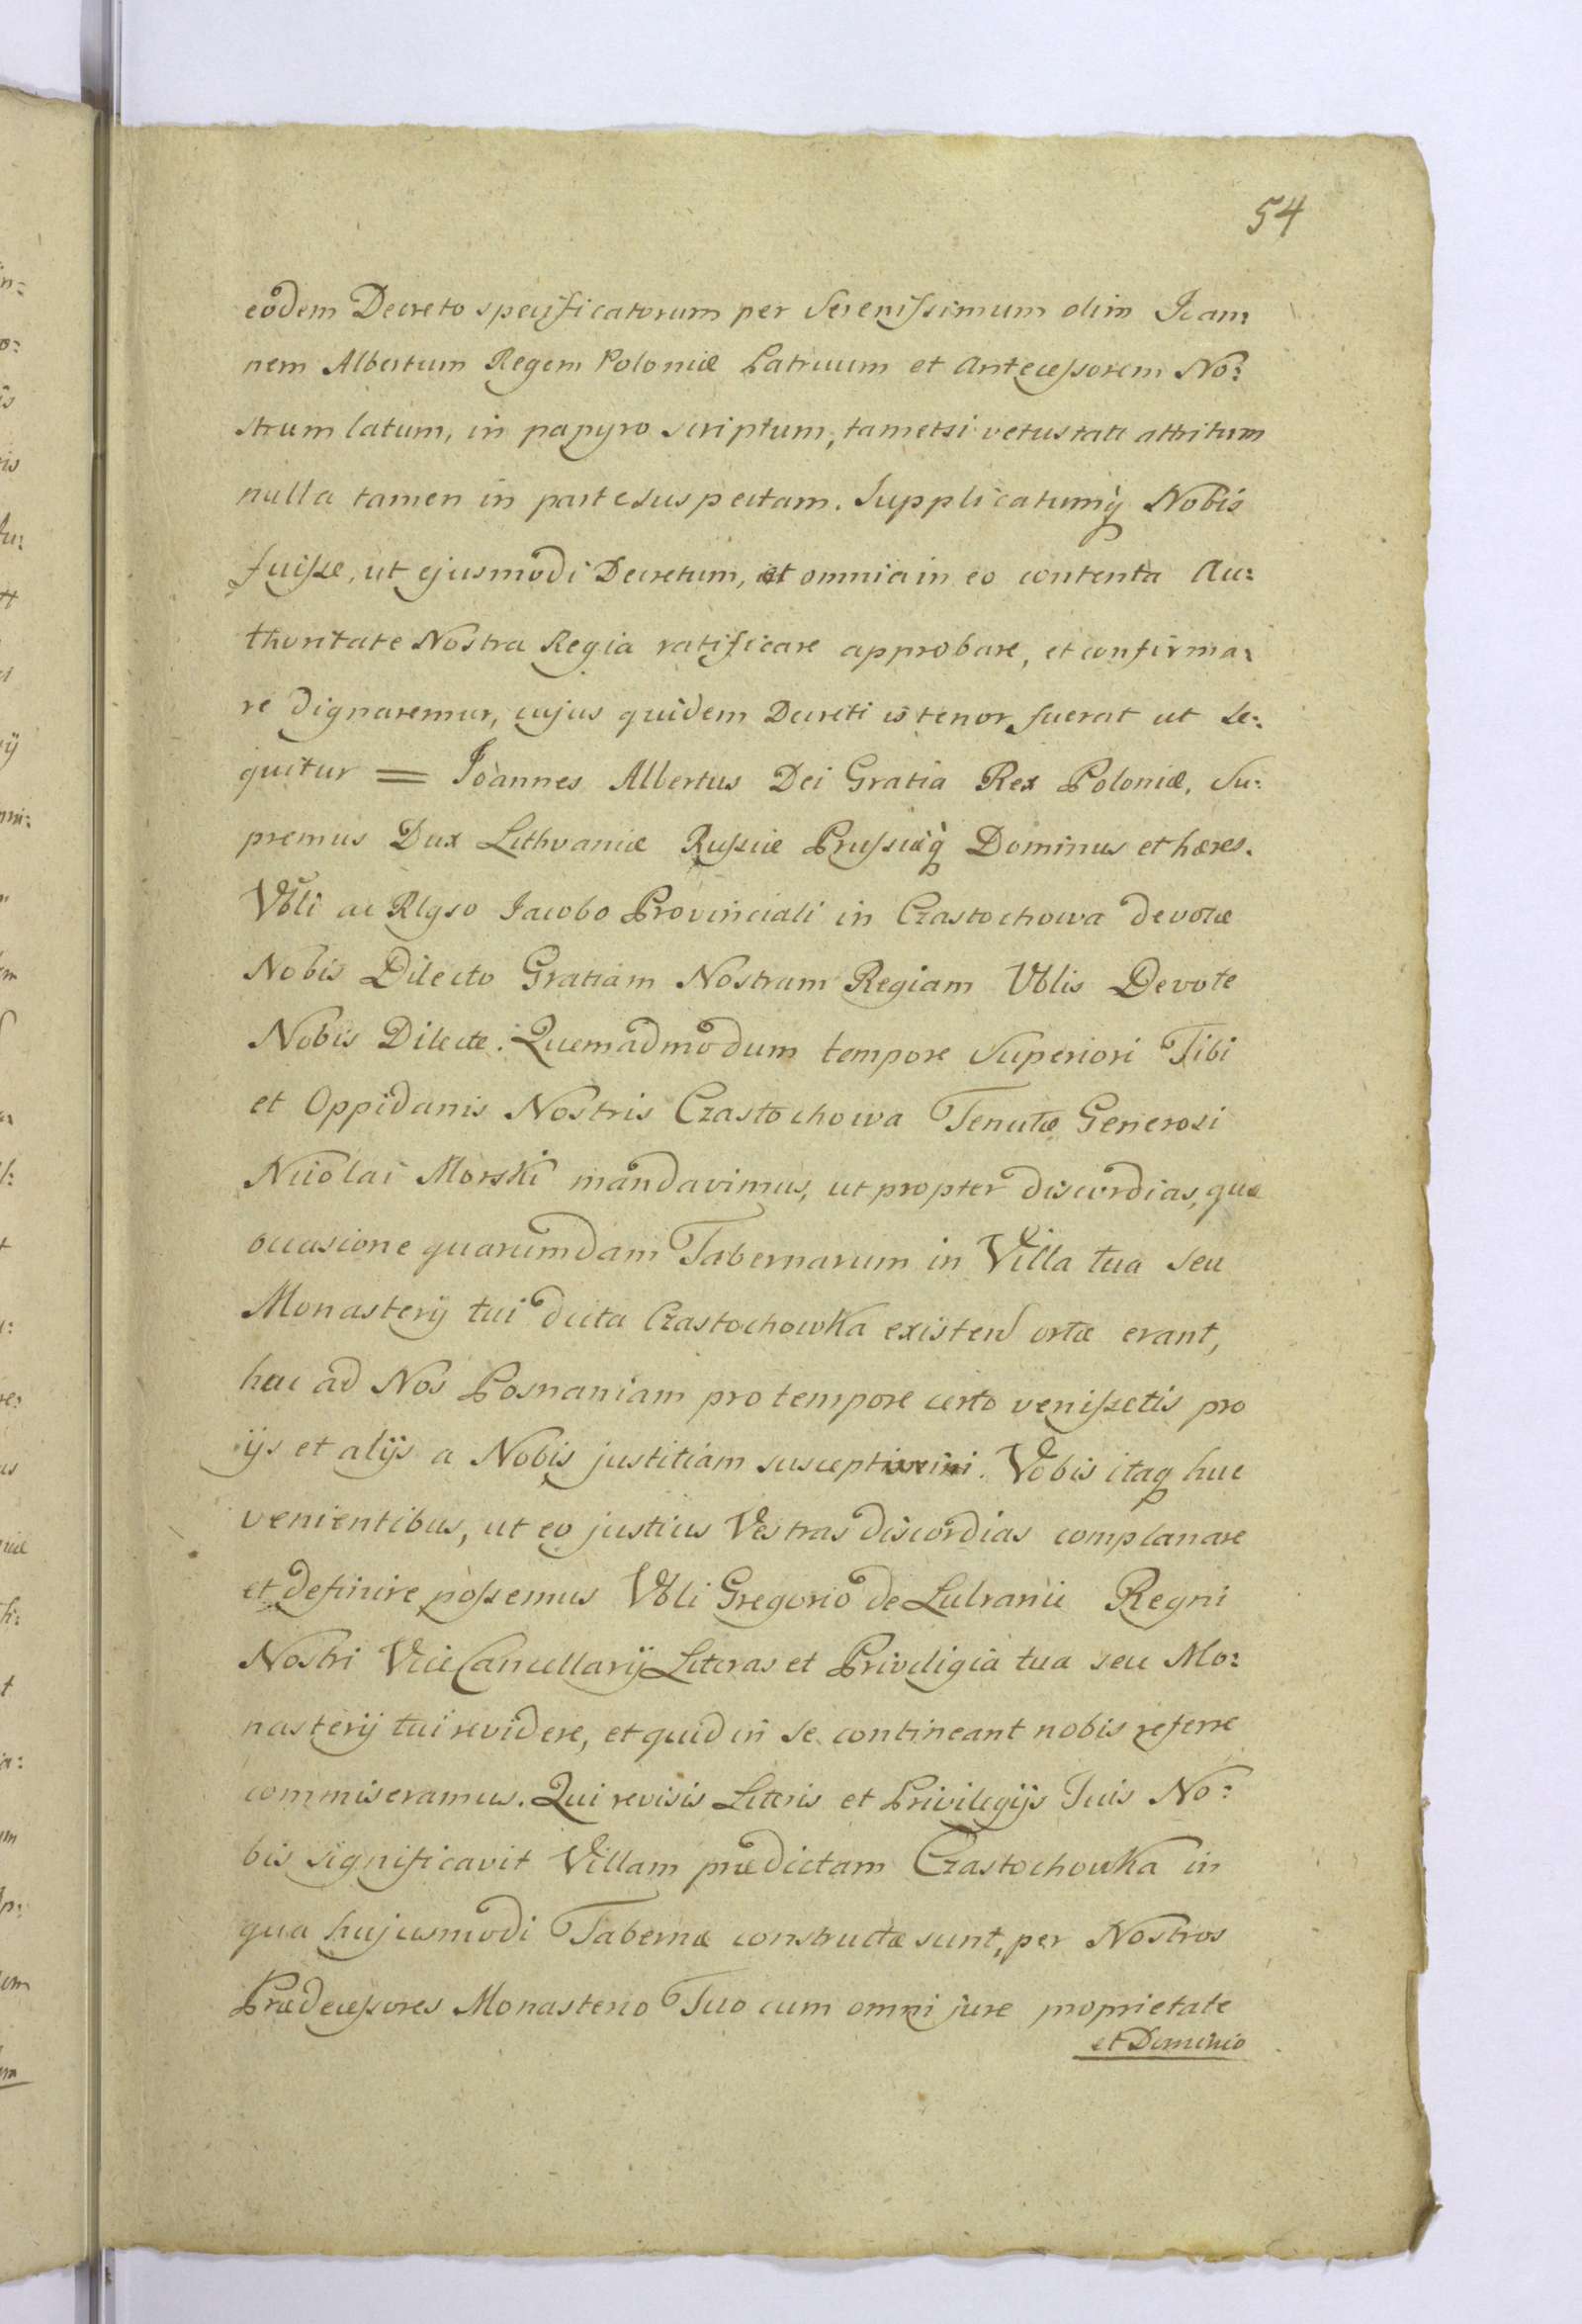 54
eodem Decreto specificatorum per Serenissimum olim Ioan:
nem Albertum Regem Poloniæ Patruum et Antecessorem No:
strum latum, in papyro scriptum, tametsi vetustate attritum
nulla tamen in parte suspectam. Supplicatumq̀ Nobis
fuisse, ut ejusmodi Decretum, et omnia in eo contenta Au:
thoritate Nostra Regia ratificare approbare, et confirma:
re dignaremur, cujus quidem Decreti is tenor fuerat ut se:
quitur = Joannes Albertus Dei Gratia Rex Poloniæ, Su:
premus Dux Lithvaniæ Russiæ Prussiæq̀ Dominus et hæres.
Vbli ac Rlgso Iacobo Provinciali in Czastochowa devotæ
Nobis Dilecto Gratiam Nostram Regiam Vblis Devote
Nobis Dilecte. Quemadmodum tempore Superiori Tibi
et Oppidanis Nostris Czastochowa Tenutæ Generosi
Nicolai Morski mandavimus, ut propter discordias, quæ
occasione quarumdam Tabernarum in Villa tua seu
Monasterij tui dicta Czastochowka existen ortæ erant,
huc ad Nos Posnaniam pro tempore certo venissetis pro
ijs et alijs a Nobis justitiam suscepti. Vobis itaq huc
venientibus, ut eo justius Vestras discordias complanare
et definire possemus Vbli Gregorio de Lulranie Regni
Nostri ViceCancellarij Literas et Priviligia tua seu Mo:
nasterij tui revidere, et quid in se contineant nobis referre
commiseramus. Qui revisis Literis et Privilegijs Tuis No:
bis significavit Villam prædictam Czastochowka in
qua hujusmodi Tabernæ constructæ sunt, per Nostros
Prædecessores Monasterio Tuo cum omni jure proprietate
et Dominio